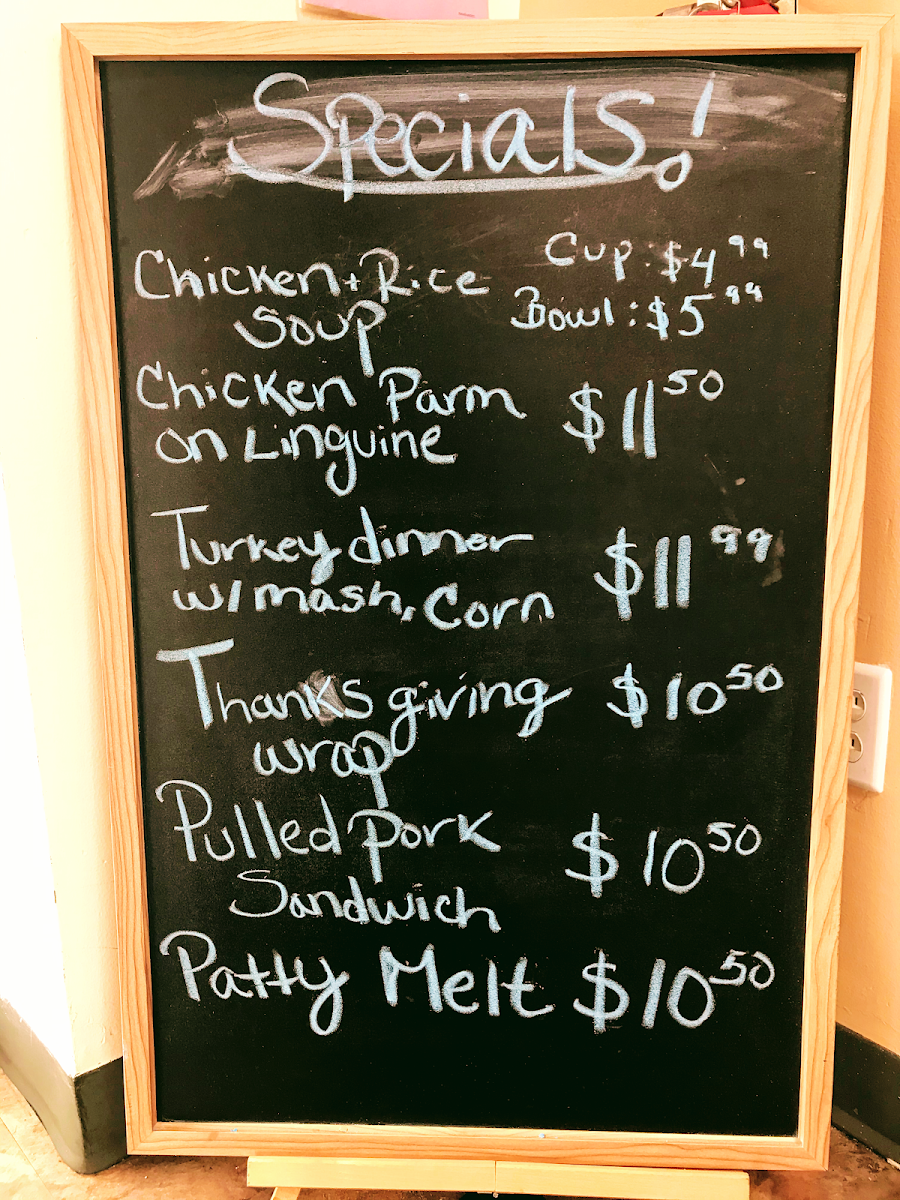 Specials!
Chicken + Rice Cup: $4.99
Soup Bowl: $5.99
Chicken Parm $11.50
on Linguine
Turkey dinner $11.99
w/ mash, Corn
Thanksgiving $10.50
wrap
Pulled pork $10.50
Sandwich
Patty Melt $10.50